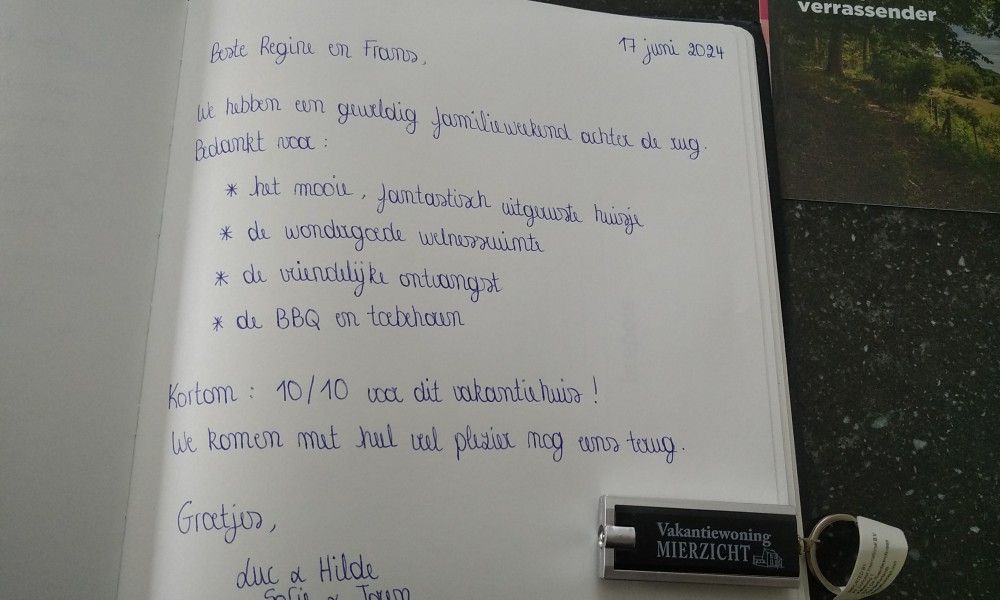 verrassender
Beste Regine en Frans,
17 juni 2024
We hebben een geweldig familieweekend achter de rug.
Bedankt voor :
* het mooie, fantastisch uitgeruste huisje
* de wondergoede welnessruimte
* de vriendelijke ontvangst
* de BBQ en toebehoren
Kortom : 10/10 voor dit vakantiehuis !
We komen met heel veel plezier nog eens terug.
Groetjes,
Luc & Hilde
Sofie &
Vakantiewoning
MIERZICHT